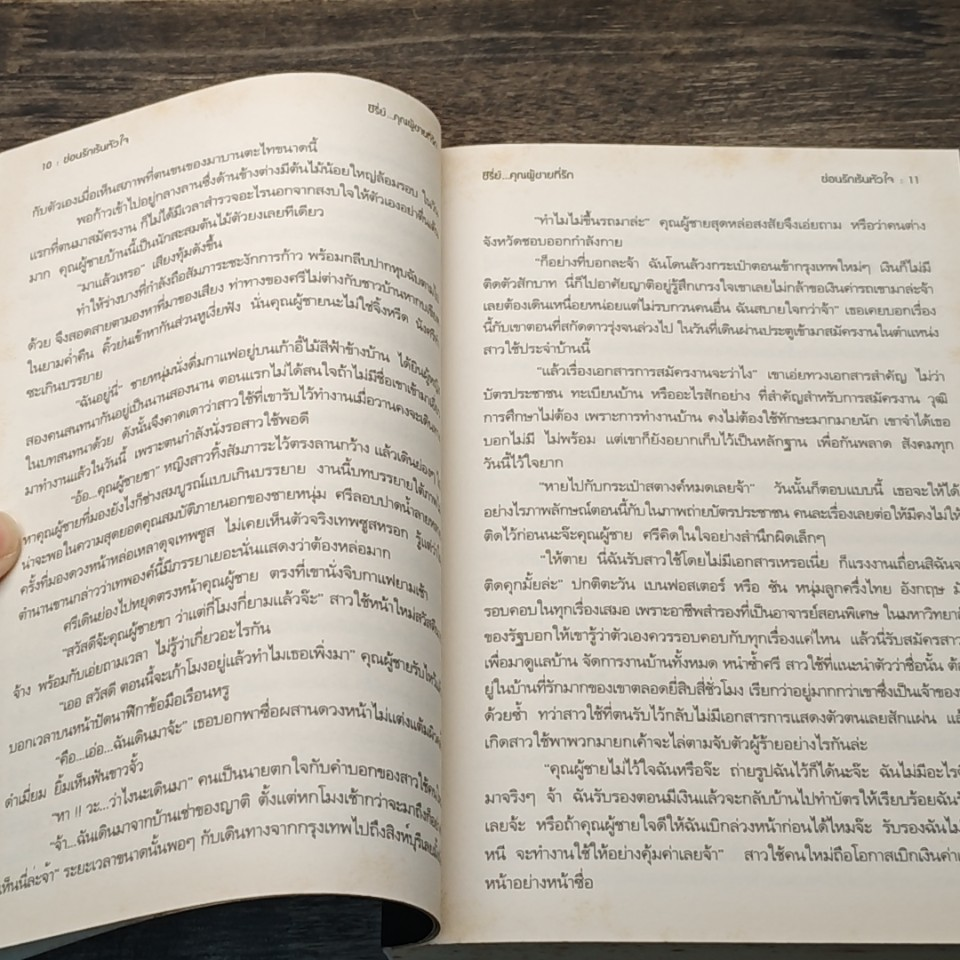 10 : ซ่อนรักเร้นหัวใจ
ซีรี่ย์...คุณผู้ชายที่รัก
กับตัวเองเมื่อเห็นสภาพที่ตนขนของมาบานตะไทขนาดนี้
พอก้าวเข้าไปอยู่กลางลานซึ่งด้านข้างต่างมีต้นไม้น้อยใหญ่ล้อมรอบ ในวัน
แรกที่ตนมาสมัครงาน ก็ไม่ได้มีเวลาสำรวจอะไรนอกจากสงบใจให้ตัวเองอย่าตื่นเต้น
มาก คุณผู้ชายบ้านนี้เป็นนักสะสมต้นไม้ตัวยงเลยทีเดียว
"มาแล้วเหรอ" เสียงทุ้มดังขึ้น
ทำให้ร่างบางที่กำลังถือสัมภาระชะงักการก้าว พร้อมกลีบปากหุบฉับตาม
ด้วย จึงสอดสายตามองหาที่มาของเสียง ท่าทางของศรีไม่ต่างกับชาวบ้านหากบเขียด
ในยามค่ำคืน คิ้วย่นเข้าหากันส่วนหูเงี่ยฟัง นั่นคุณผู้ชายนะไม่ใช่จิ้งหรีด
ซะเกินบรรยาย
"ฉันอยู่นี่" ชายหนุ่มนั่งดื่มกาแฟอยู่บนเก้าอี้ไม้สีฟ้าข้างบ้าน ได้ยินผู้หญิง
สองคนสนทนากันอยู่เป็นนานสองนาน ตอนแรกไม่ได้สนใจถ้าไม่มีชื่อเขาเข้ามาเกี่ยว
ในบทสนทนาด้วย ดังนั้นจึงคาดเดาว่าสาวใช้ที่เขารับไว้ทำงานเมื่อวานคงจะเดินทาง
มาทำงานแล้วในวันนี้ เพราะตนกำลังนั่งรอสาวใช้พอดี
"อ้อ...คุณผู้ชายขา" หญิงสาวทิ้งสัมภาระไว้ตรงลานกว้าง แล้วเดินย่องๆ
หาคุณผู้ชายที่มองยังไงก็ช่างสมบูรณ์แบบเกินบรรยาย งานนี้บทบรรยายใต้ภาพ
น่าจะพอในความสุดยอดคุณสมบัติภายนอกของชายหนุ่ม ศรีลอบปาดน้ำลายทุก
ครั้งที่มองดวงหน้าหล่อเหลาดุจเทพซูส ไม่เคยเห็นตัวจริงเทพซูสหรอก รู้แต่ว่า
ตำนานขานกล่าวว่าเทพองค์นี้มีภรรยาเยอะนั่นแสดงว่าต้องหล่อมาก
ศรีเดินย่องไปหยุดตรงหน้าคุณผู้ชาย ตรงที่เขานั่งจิบกาแฟยามเช้า
"สวัสดีจ้ะคุณผู้ชายขา ว่าแต่กี่โมงกี่ยามแล้วจ๊ะ" สาวใช้หน้าใหม่สวัสดีนาย
จ้าง พร้อมกับเอ่ยถามเวลา ไม่รู้ว่าเกี่ยวอะไรกัน
"เออ สวัสดี ตอนนี้จะเก้าโมงอยู่แล้วทำไมเธอเพิ่งมา" คุณผู้ชายรับไหว้
บอกเวลาบนหน้าปัดนาฬิกาข้อมือเรือนหรู
"คือ...เอ่อ...ฉันเดินมาจ้ะ" เธอบอกพาซื่อผสานดวงหน้าไม่แต่งแต้มผิว
ดำเมี่ยม ยิ้มเห็นฟันขาวจั้ว
"หา !! วะ...ว่าไงนะเดินมา" คนเป็นนายตกใจกับคำบอกของสาวใช้คนใหม่
"จ้า...ฉันเดินมาจากบ้านเช่าของญาติ ตั้งแต่หกโมงเช้ากว่าจะมาถึงก็อย่าง
เห็นนี่ล่ะจ้า" ระยะเวลาขนาดนั้นพอๆ กับเดินทางจากกรุงเทพไปถึงสิงห์บุรีเลย
ซีรี่ย์...คุณผู้ชายที่รัก
ซ่อนรักเร้นหัวใจ : 11
"ทำไมไม่ขึ้นรถมาล่ะ" คุณผู้ชายสุดหล่อสงสัยจึงเอ่ยถาม หรือว่าคนต่าง
จังหวัดชอบออกกำลังกาย
"ก็อย่างที่บอกละจ้า ฉันโดนล้วงกระเป๋าตอนเข้ากรุงเทพใหม่ๆ เงินก็ไม่มี
ติดตัวสักบาท นี่ก็ไปอาศัยญาติอยู่รู้สึกเกรงใจเขาเลยไม่กล้าขอเงินค่ารถเขามาล่ะจ้า
เลยต้องเดินเหนื่อยหน่อยแต่ไม่รบกวนคนอื่น ฉันสบายใจกว่าจ้า" เธอเคยบอกเรื่อง
นี้กับเขาตอนที่สกัดดาวรุ่งจนล่วงไป ในวันที่เดินผ่านประตูเข้ามาสมัครงานในตำแหน่ง
สาวใช้ประจำบ้านนี้
"แล้วเรื่องเอกสารการสมัครงานจะว่าไง" เขาเอ่ยทวงเอกสารสำคัญ ไม่ว่า
บัตรประชาชน ทะเบียนบ้าน หรืออะไรสักอย่าง ที่สำคัญสำหรับการสมัครงาน วุฒิ
การศึกษาไม่ต้อง เพราะการทำงานบ้าน คงไม่ต้องใช้ทักษะมากมายนัก เขาจำได้เธอ
บอกไม่มี ไม่พร้อม แต่เขาก็ยังอยากเก็บไว้เป็นหลักฐาน เพื่อกันพลาด สังคมทุก
วันนี้ไว้ใจยาก
"หายไปกับกระเป๋าสตางค์หมดเลยจ้า" วันนั้นก็ตอบแบบนี้ เธอจะให้ได้
อย่างไรภาพลักษณ์ตอนนี้กับในภาพถ่ายบัตรประชาชน คนละเรื่องเลยต่อให้มีคงไม่ให้
ติดไว้ก่อนนะจ๊ะคุณผู้ชาย ศรีคิดในใจอย่างสำนึกผิดเล็กๆ
"ให้ตาย นี่ฉันรับสาวใช้โดยไม่มีเอกสารเหรอเนี่ย ก็แรงงานเถื่อนสิฉันจะ
ติดคุกมั้ยล่ะ" ปกติตะวัน เบนฟอสเตอร์ หรือ ซัน หนุ่มลูกครึ่งไทย อังกฤษ
รอบคอบในทุกเรื่องเสมอ เพราะอาชีพสำรองที่เป็นอาจารย์สอนพิเศษ ในมหาวิทยาลัย
ของรัฐบอกให้เขารู้ว่าตัวเองควรรอบคอบกับทุกเรื่องแค่ไหน แล้วนี่รับสมัครสาว
เพื่อมาดูแลบ้าน จัดการงานบ้านทั้งหมด หน้าซ้ำศรี สาวใช้ที่แนะนำตัวว่าชื่อนั้น ต้อง
อยู่ในบ้านที่รักมากของเขาตลอดยี่สิบสี่ชั่วโมง เรียกว่าอยู่มากกว่าเขาซึ่งเป็นเจ้าของ
ด้วยซ้ำ ทว่าสาวใช้ที่ตนรับไว้กลับไม่มีเอกสารการแสดงตัวตนเลยสักแผ่น แล้ว
เกิดสาวใช้พาพวกมายกเค้าจะไล่ตามจับตัวผู้ร้ายอย่างไรกันล่ะ
"คุณผู้ชายไม่ไว้ใจฉันหรือจ๊ะ ถ่ายรูปฉันไว้ก็ได้นะจ๊ะ ฉันไม่มีอะไร
มาจริงๆ จ้า ฉันรับรองตอนมีเงินแล้วจะกลับบ้านไปทำบัตรให้เรียบร้อย
เลยจ้ะ หรือถ้าคุณผู้ชายใจดีให้ฉันเบิกล่วงหน้าก่อนได้ไหมจ๊ะ รับรองฉันไม่
หนี จะทำงานใช้ให้อย่างคุ้มค่าเลยจ้า" สาวใช้คนใหม่ถือโอกาสเบิกเงินค่า
หน้าอย่างหน้าซื่อ